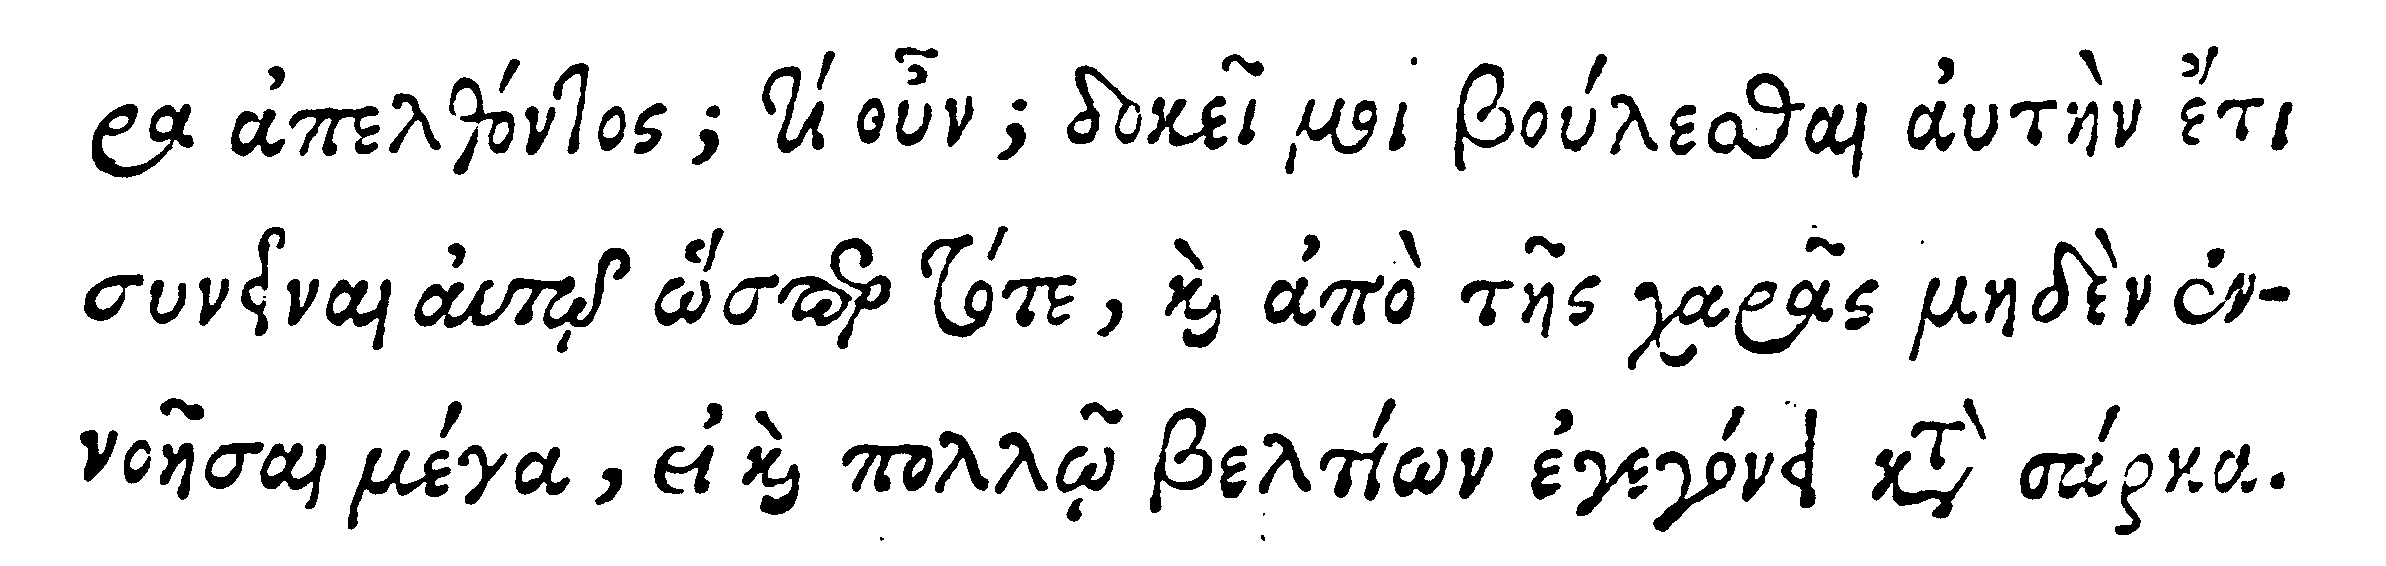 ρα ἀπελθόντος; τί οὖν; δοκεῖ μοι βούλεσθαι ἀυτὴν ἔτι
συνεῖναι ἀυτῷ ὥσπερ τότε, καὶ ἀπὸ τῆς χαρᾶς μηδὲν ἐν-
νοῆσαι μέγα, εἰ καὶ πολλῷ βελτίων ἐγεγόνει κατὰ σάρκα.